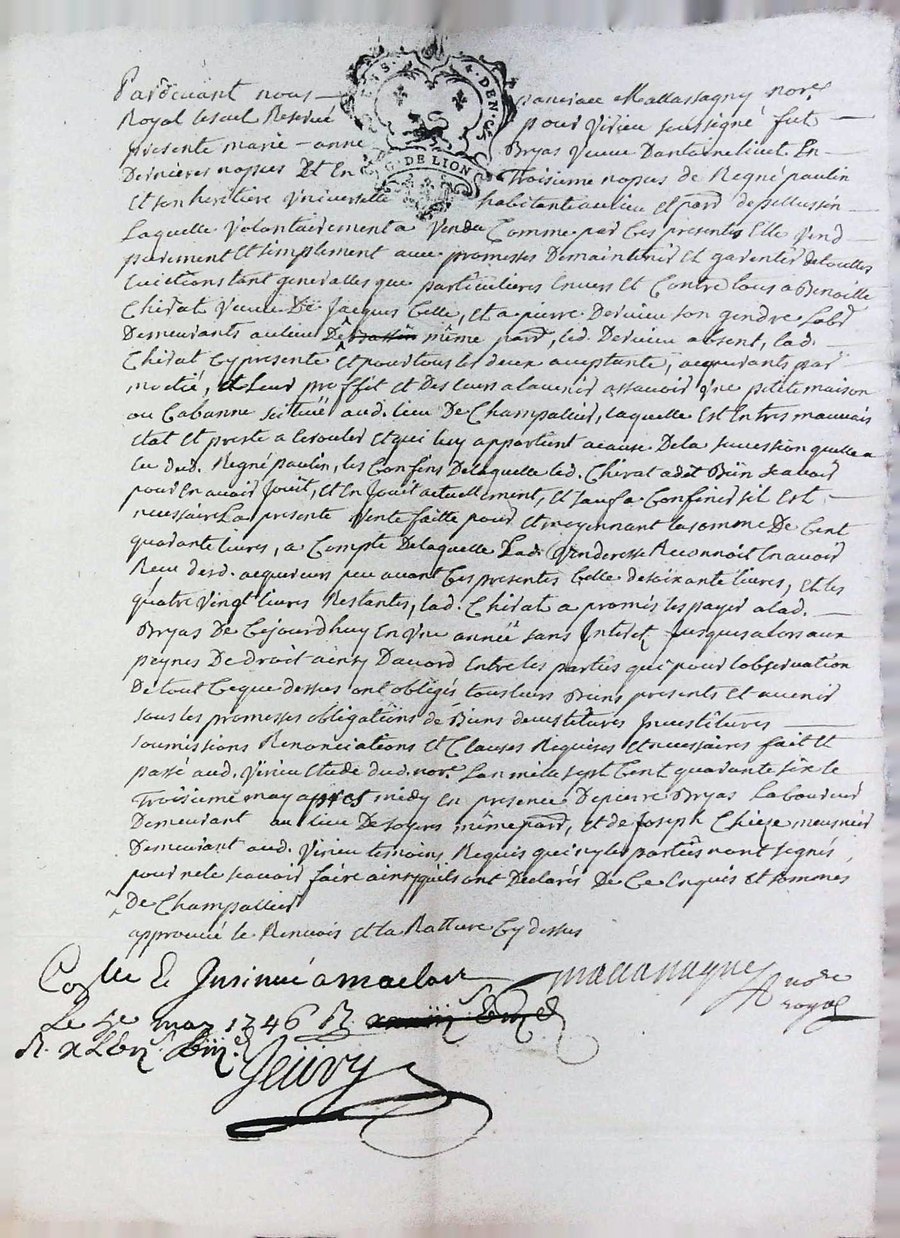 Pardevant nous pancrace Mallassagny nore
Royal le seul Reservé pour Virieu soussigné fut
presente marie-anne Bryas Veuve Dantoine linet En
Dernieres nopces Et En Troisieme nopces de Regné paulin
et son heritiere Vniverselle habitante au lieu et parr de pellussin
Laquelle Volontairement a Vendu Comme par Ces presentes Elle Vend
purement Et simplement avec promesses De maintenir Et garentir de touttes
Evictions tant generalles que particulieres Envers et Contre tous a Benoitte
Chirat Veuve De Jacques Celle, et a pierre Dervieu son gendre Labr
Demeurants au lieu De même parr, led. Dervieu absent, lad.
Chirat Cy presente Et pour tous les deux acceptante, acquerants par
moctié, a Leur proffit et Des leurs a lavenir assavoir Vne petite maison
ou Cabanne scittüée aud. lieu De Champallier, laquelle Est En tres mauvais
Etat Et preste a Ecrouler Et qui luy appartient a cause De la succession quelle a
Eu dud. Regné paulin, les Confins De laquelle lad. Chirat a dit Bien scavoir
pour En avoir Jouit, et En Jouit actuellement, et sauf a Confiner sil Est
necessaire La presente Vente faitte pour Et moyennant la somme De Cent
quarante livres, a Compte De laquelle Lad. Venderesse Reconnoit En avoir
Receu desd. acquereurs peu avant Ces presentes Celle de soixante livres, Et les
quatre Vingt livres Restantes, lad. Chirat a promis les payer a lad.
Bryas De Cejourdhuy En Vne année sans Interet Jusques alors aux
peynes De droit ainsy Dacord Entre les parties qui pour lobservation
De tout Ceque dessus ont obligés tous leurs Biens presents Et avenir
sous les promesses obligations de Biens devestitures Investitures
soumissions Renonciations et Clauses Requises et necessaires fait Et
passé aud. Virieu Etude dud. nore. Lan mil sept Cent quarante six le
Troisieme may apres midy En presence De pierre Bryas Laboureur
Demeurant au lieu De soyeres même parr, Et de Joseph Chieze meusnier
Demeurant aud. Virieu temoins Requis qui ny les parties nont signés
pour ne le scavoir faire ainsy quils ont Declarés De Ce Enquis Et sommés
De Champallier
approuvé le Renvois et la Ratture Cy dessus
Con lle & Insinué a maclas
Le 5e may 1746 R
nore
royal
4. DEN. G. DE LION